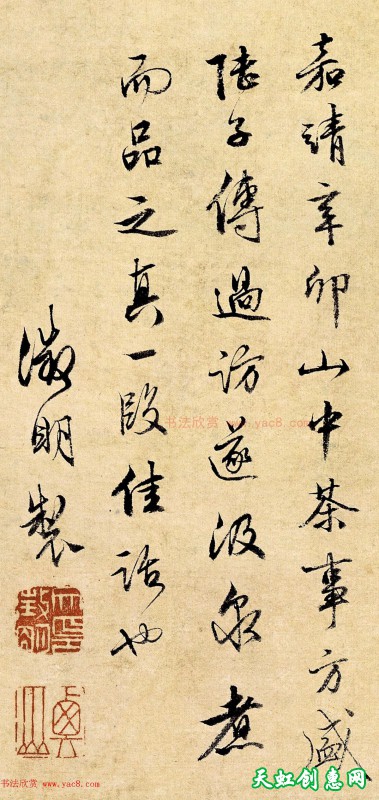 嘉靖辛卯山中茶事方盛
陸子傅過訪遂汲泉煮
而品之真一段佳話也
徵明製
书法欣赏 www.yac8.com
书法欣赏 www.yac8.com
天虹创意网